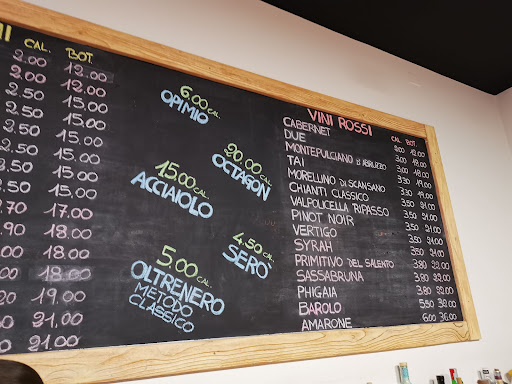 CAL. BOT.
2.00 12.00
2.00 12.00
2.50 15.00
2.50 15.00
2.50 15.00
2.50 15.00
2.50 15.00
2.50 15.00
2.70 17.00
2.90 18.00
18.00
18.00
19.00
21.00
21.00
6.00 CAL.
OPIMIO
20.00 CAL.
OCTAGON
15.00 CAL.
ACCIAIOLO
4.50 CAL.
SERO'
5.00 CAL.
OLTRENERO
METODO
CLASSICO
VINI ROSSI CAL. BOT.
CABERNET 2.00 12.00
DUE 3.00 18.00
MONTEPULCIANO D'ABRUZZO 3.00 18.00
TAI 3.30 19.00
MORELLINO DI SCANSANO 3.30 19.00
CHIANTI CLASSICO 3.50 21.00
VALPOLICELLA RIPASSO 3.50 21.00
PINOT NOIR 3.50 21.00
VERTIGO 3.50 21.00
SYRAH
PRIMITIVO DEL SALENTO
SASSABRUNA
PHIGAIA
BAROLO 5.50
AMARONE 6.00 36.00